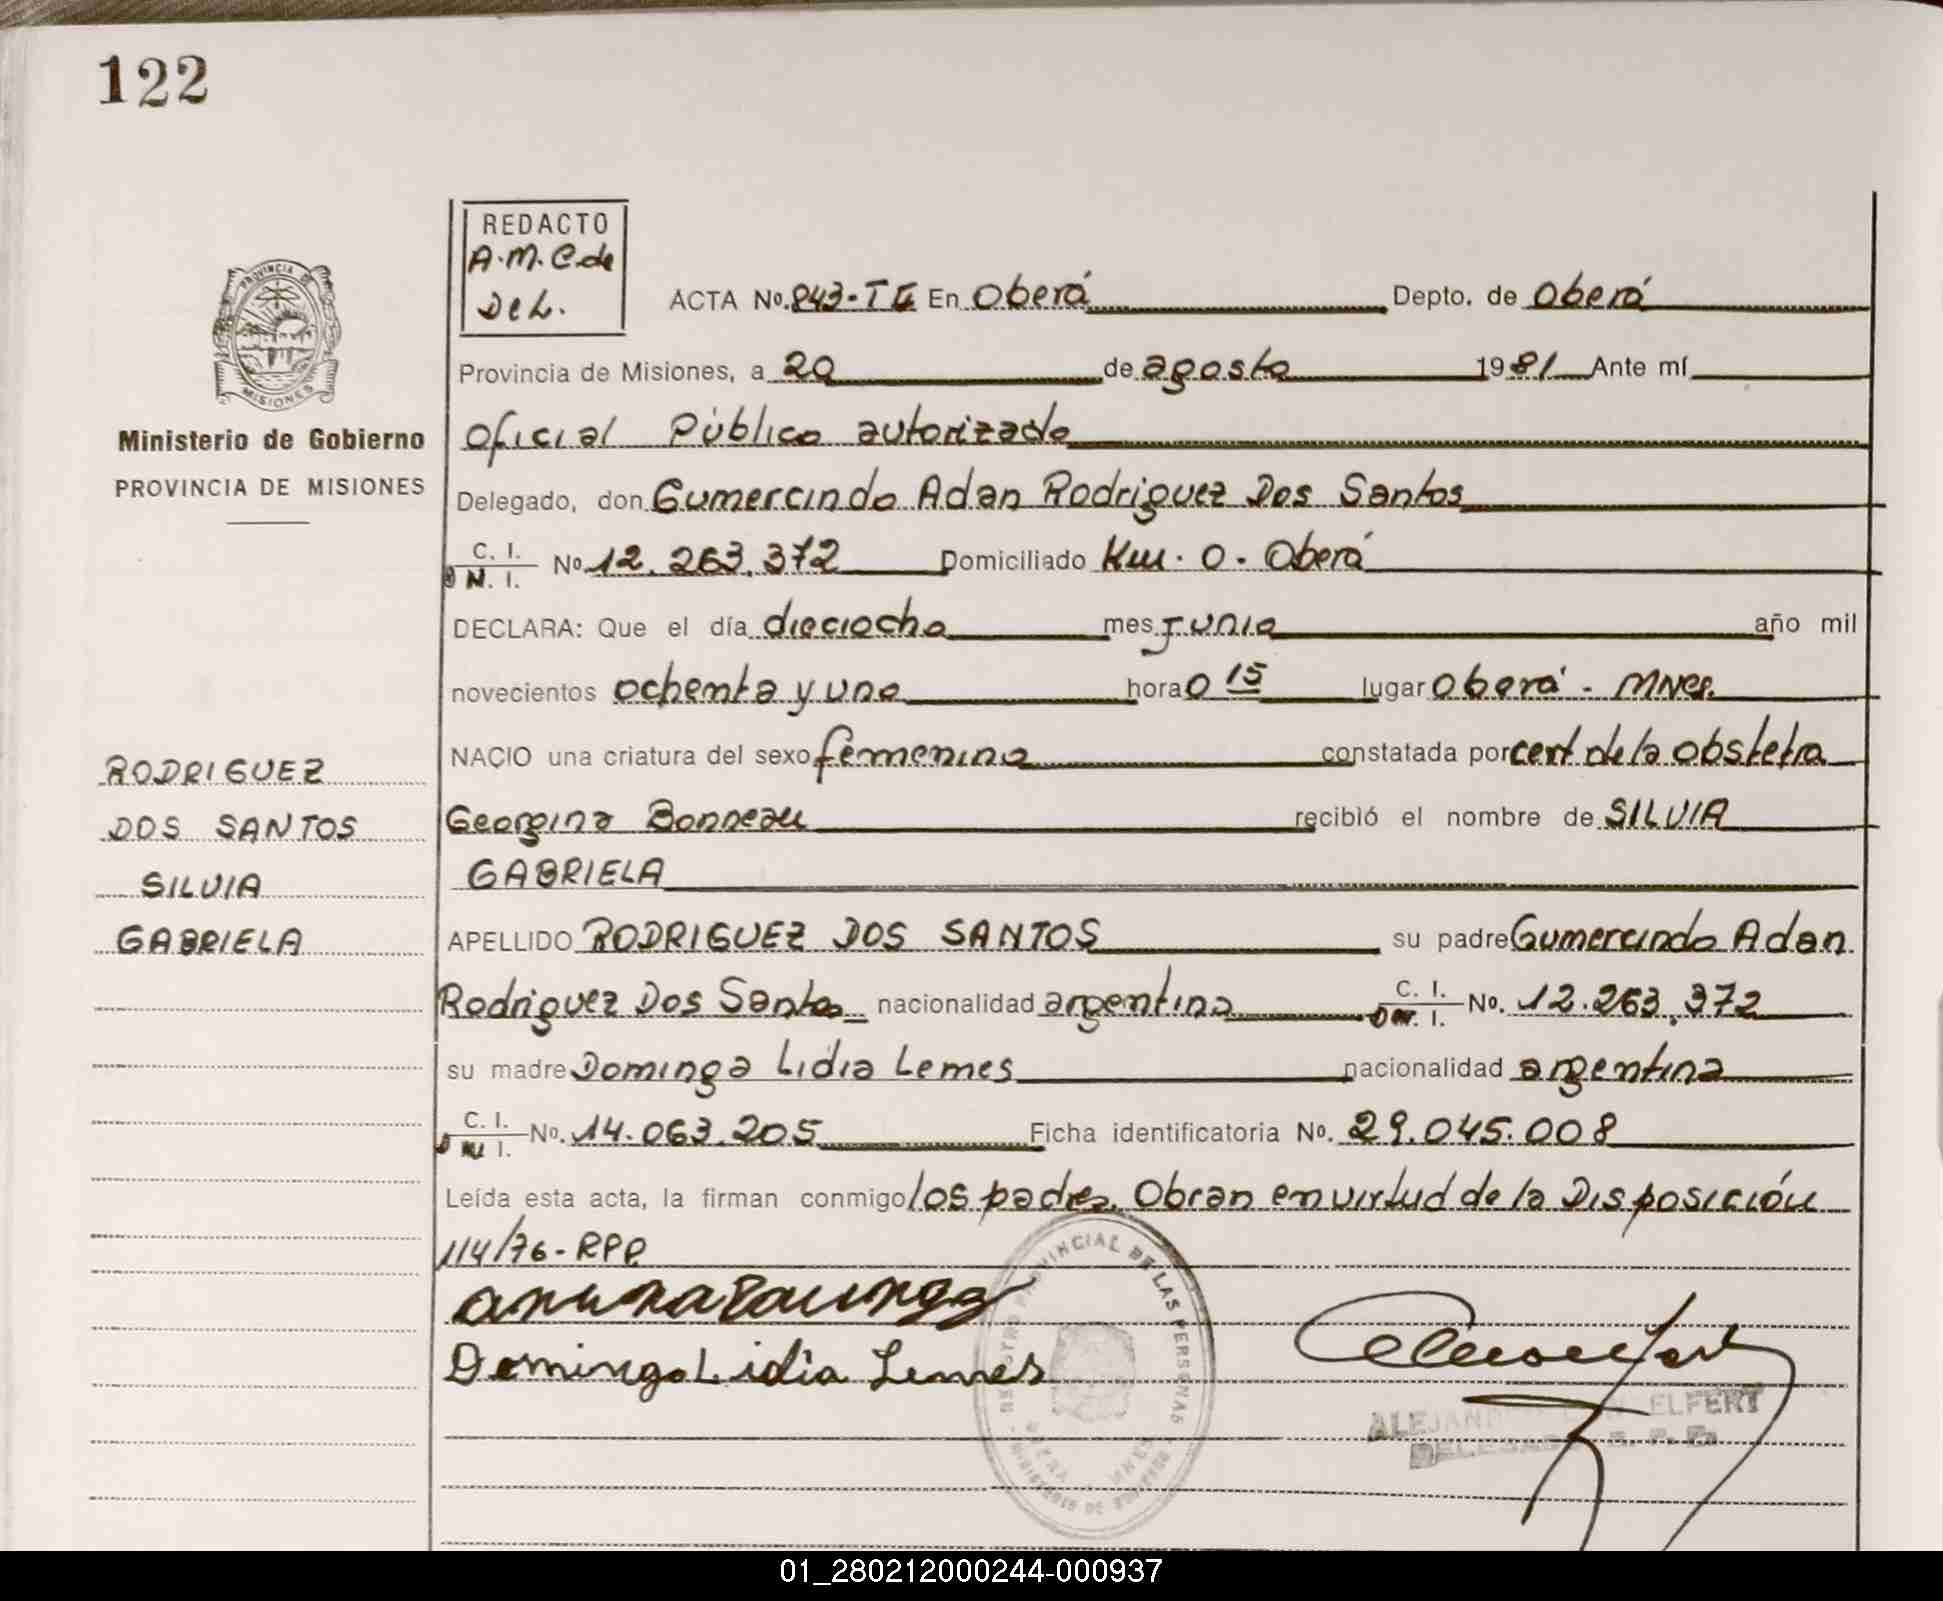 122
REDACTO
A.M.C.de
Del.
ACTA No. 843-TG En Oberá Depto. de Oberá
Provincia de Misiones, a 20 de agosto 1981 Ante mí
Ministerio de Gobierno
PROVINCIA DE MISIONES
Oficial Público autorizado
Delegado, don Gumercindo Adan Rodriguez Dos Santos
C. I.
D N. I. No 12.263.372 Domiciliado Km. 0 - Oberá
DECLARA: Que el día dieciocho mes Junio año mil
novecientos ochenta y uno hora 0 15 lugar Oberá - Mnes.
NACIO una criatura del sexo femenino constatada por cert de la obstetra
Georgina Bonneau recibió el nombre de SILVIA
GABRIELA
APELLIDO RODRIGUEZ DOS SANTOS su padre Gumercindo Adan
Rodriguez Dos Santos nacionalidad argentina C. I. D N. I. No. 12.263.372
su madre Dominga Lidia Lemes nacionalidad argentina
C. I. D N. I. No. 14.063.205 Ficha identificatoria No. 29.045.008
Leída esta acta, la firman conmigo los padres. Obran en virtud de la Disposición
114/76-RPP.
Dominga Lidia Lemes
RODRIGUEZ
DOS SANTOS
SILVIA
GABRIELA
PROVINCIA DE
MISIONES
REGISTRO PROVINCIAL DE LAS PERSONAS
MINISTERIO DE GOBIERNO
OBERA MNES
ELFERT
DELEGADO R. P. P.
01_280212000244-000937